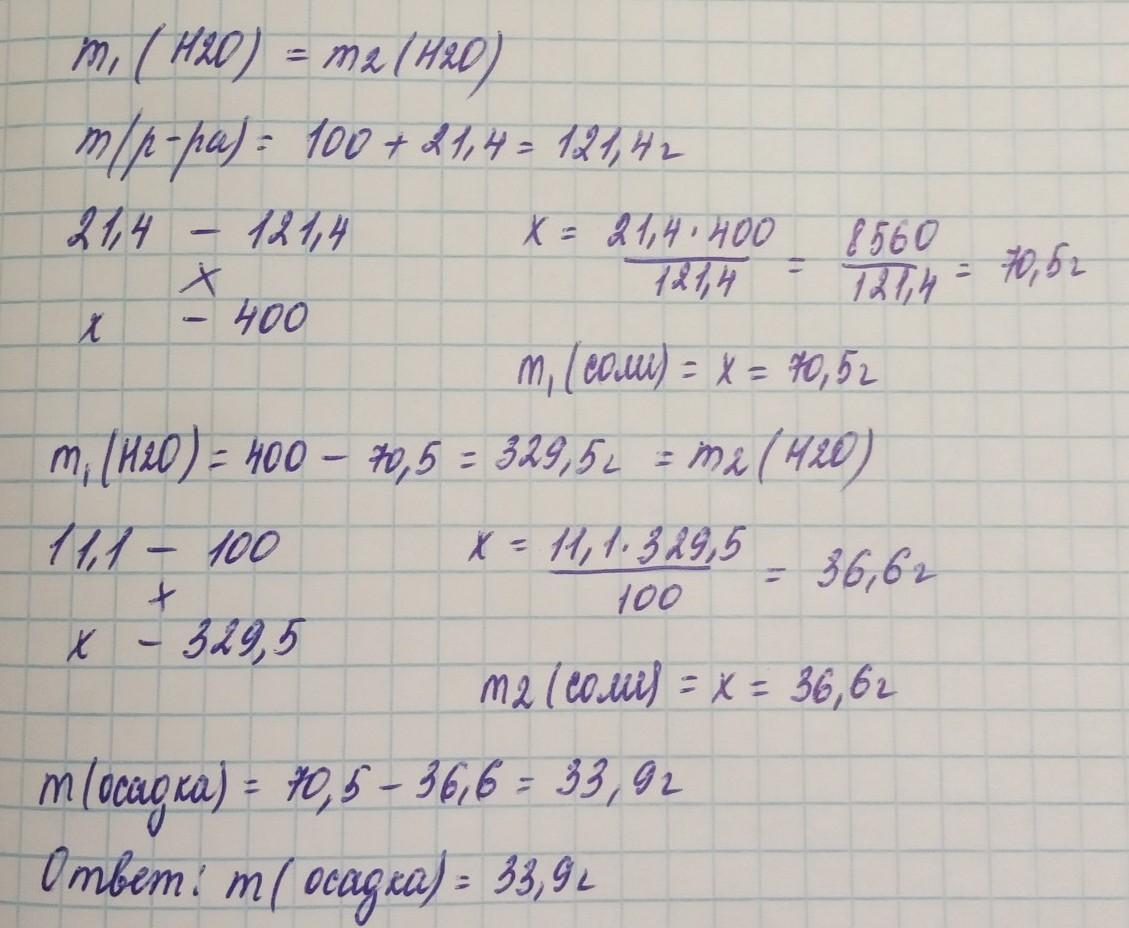 m₁(H2O) = m2(H2O)
m(р-ра) = 100 + 21,4 = 121,4г
21,4 – 121,4
x
x – 400
x = 21,4·400/121,4 = 8560/121,4 = 70,5г
m₁(соли) = x = 70,5г
m₁(H2O) = 400 – 70,5 = 329,5г = m2(H2O)
11,1 – 100
x
x – 329,5
x = 11,1·329,5/100 = 36,6г
m2(соли) = x = 36,6г
m(осадка) = 70,5 – 36,6 = 33,9г
Ответ: m(осадка) = 33,9г